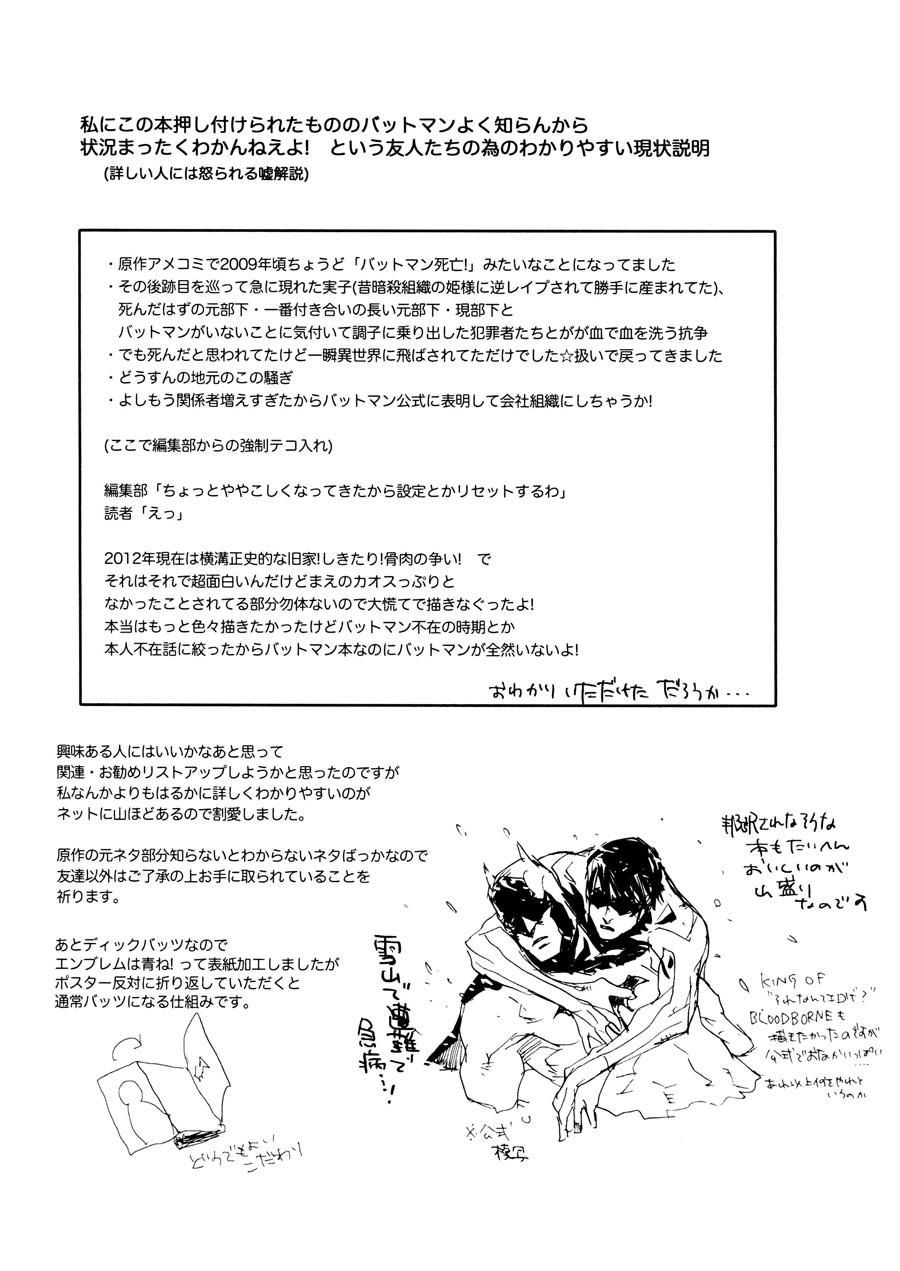 私にこの本押し付けられたもののバットマンよく知らんから
状況まったくわかんねえよ!　という友人たちの為のわかりやすい現状説明
(詳しい人には怒られる嘘解説)
・原作アメコミで2009年頃ちょうど「バットマン死亡!」みたいなことになってました
・その後跡目を巡って急に現れた実子(昔暗殺組織の姫様に逆レイプされて勝手に産まれてた)、
死んだはずの元部下・一番付き合いの長い元部下・現部下と
バットマンがいないことに気付いて調子に乗り出した犯罪者たちとがが血で血を洗う抗争
・でも死んだと思われてたけど一瞬異世界に飛ばされてただけでした☆扱いで戻ってきました
・どうすんの地元のこの騒ぎ
・よしもう関係者増えすぎたからバットマン公式に表明して会社組織にしちゃうか!
(ここで編集部からの強制テコ入れ)
編集部「ちょっとややこしくなってきたから設定とかリセットするわ」
読者「えっ」
2012年現在は横溝正史的な旧家!しきたり!骨肉の争い!　で
それはそれで超面白いんだけどまえのカオスっぷりと
なかったことされてる部分勿体ないので大慌てで描きなぐったよ!
本当はもっと色々描きたかったけどバットマン不在の時期とか
本人不在話に絞ったからバットマン本なのにバットマンが全然いないよ!
おわかりいただけただろうか...
興味ある人にはいいかなあと思って
関連・お勧めリストアップしようかと思ったのですが
私なんかよりもはるかに詳しくわかりやすいのが
ネットに山ほどあるので割愛しました。
原作の元ネタ部分知らないとわからないネタばっかなので
友達以外はご了承の上お手に取られていることを
祈ります。
あとディックバッツなので
エンブレムは青ね! って表紙加工しましたが
ポスター反対に折り返していただくと
通常バッツになる仕組みです。
どうでもよい
こだわり
雪山で遭難で
※公式
邦訳されなそうな
本もたいへん
おいしいのが
山盛り
なのです
KING OF
"それなんてエロゲ?"
BLOODBORNEも
描きたかったのですが
公式でおなかいっぱい
....
あれ以上何をやれと
いうのか